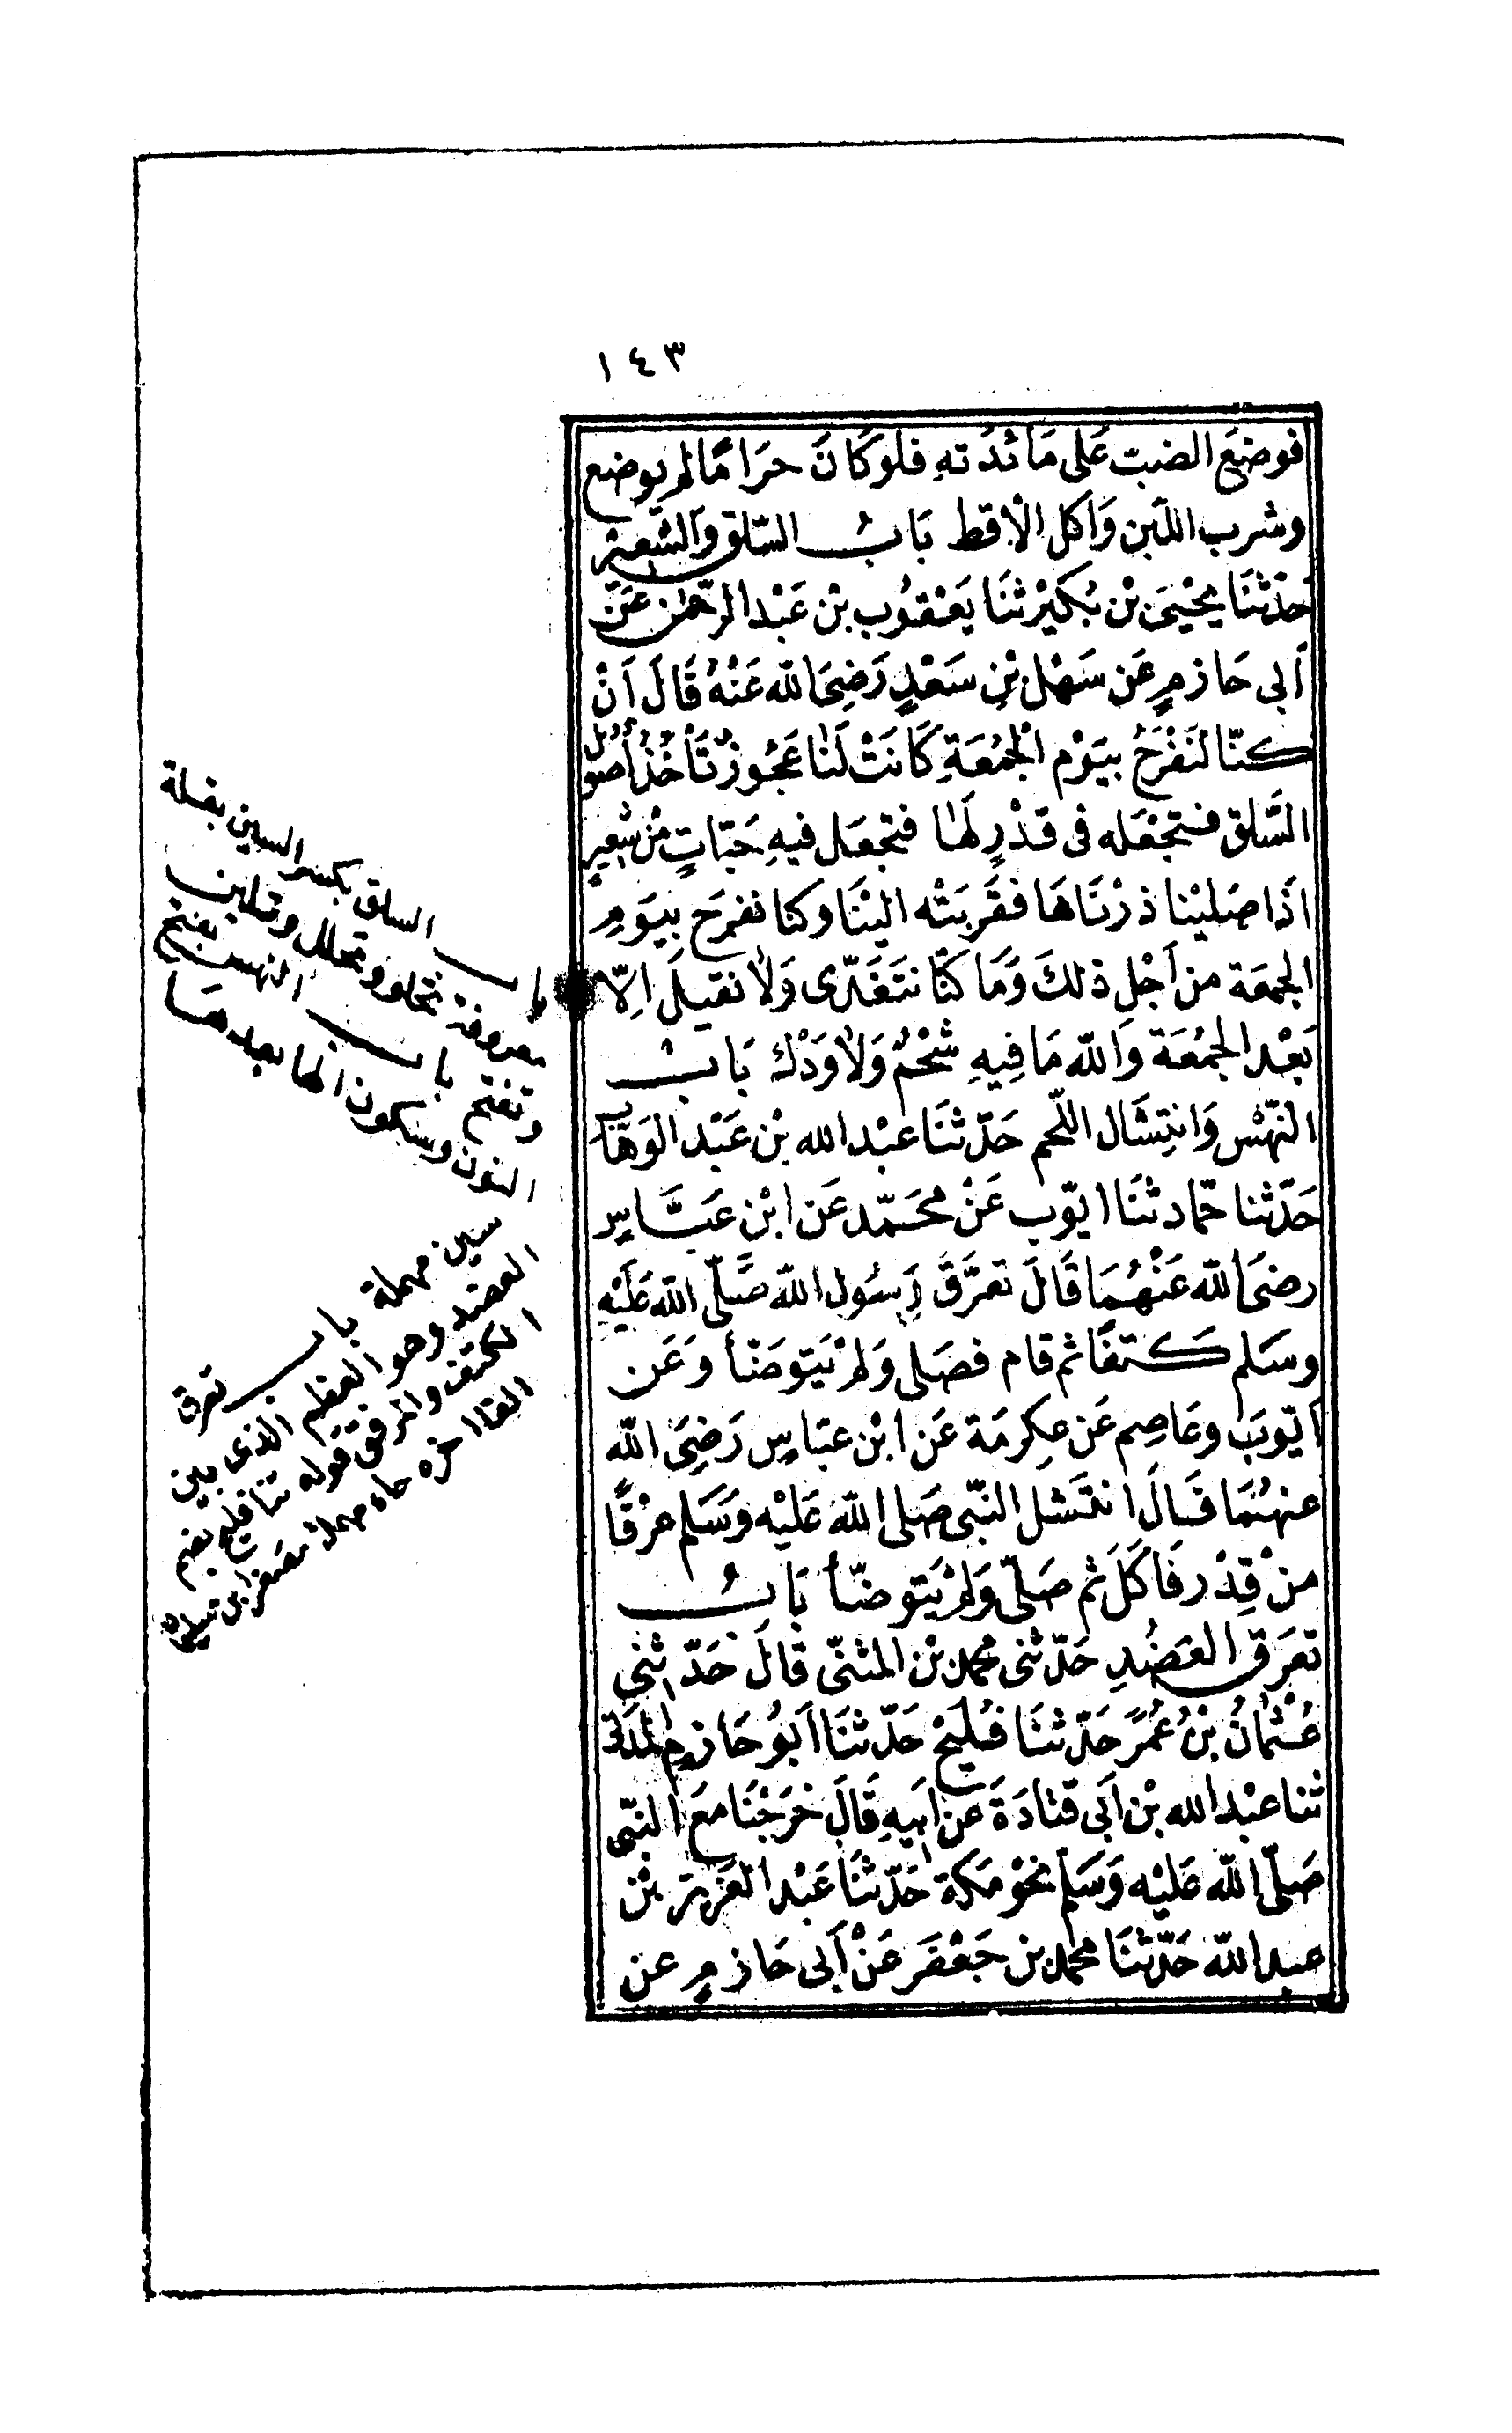 ١٤٣
فوضع الضب على مائدته فلو كان حراما لم يوضع
وشرب اللبن واكل الاقط باب السلق والشعير
حدثنا يحيى بن بكير ثنا يعقوب بن عبد الرحمن عن
ابى حازم عن سهل بن سعد رضى الله عنه قال ان
كنا لنفرح بيوم الجمعة كانت لنا عجوز تأخذ أصول
السلق فتجعله فى قدر لها فتجعل فيه حبات من شعير
اذا صلينا زرناها فقربته الينا وكنا نفرح بيوم
الجمعة من أجل ذلك وما كنا نتغدى ولا نقيل الا
بعد الجمعة والله ما فيه شحم ولا ودك باب
النهس وانتشال اللحم حدثنا عبد الله بن عبد الوهاب
حدثنا حماد ثنا ايوب عن محمد عن ابن عباس
رضى الله عنهما قال تعرق رسول الله صلى الله عليه
وسلم كتفا ثم قام فصلى ولم يتوضأ وعن
ايوب وعاصم عن عكرمة عن ابن عباس رضى الله
عنهما قال انتشل النبى صلى الله عليه وسلم عرقا
من قدر فأكل ثم صلى ولم يتوضأ باب
تعرق العضد حدثنى محمد بن المثنى قال حدثنى
عثمان بن عمر حدثنا فليح حدثنا ابو حازم المدنى
ثنا عبد الله بن ابى قتادة عن ابيه قال خرجنا مع النبى
صلى الله عليه وسلم نحو مكة حدثنا عبد العزيز بن
عبد الله حدثنا محمد بن جعفر عن أبى حازم عن
باب السلق بكسر السين بقلة
معروفة تجلو وتحلل وتلين
وتفتح باب النهس بفتح
النون وسكون الها بعدها
سين مهملة باب تعرق
العضد وهو العظم الذى بين
الكتف والمرفق قوله ثنا فليح بضم
الفا اخره حاء مهملة مصغر ابن